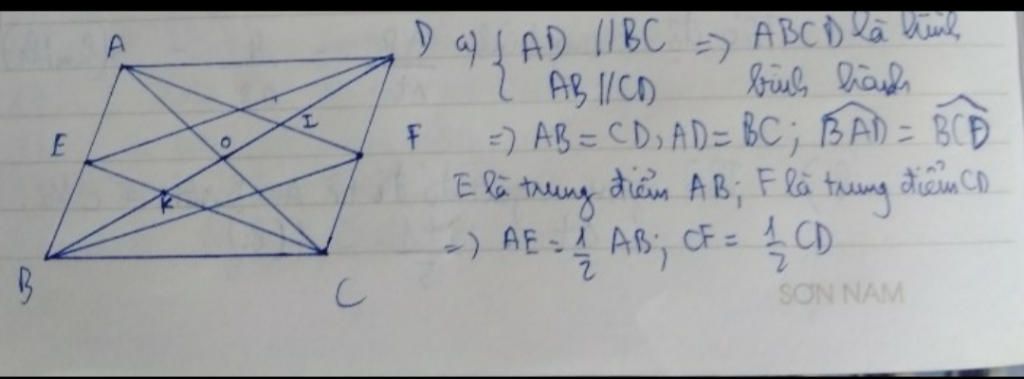 A D a) { AD // BC => ABCD là hình
AB // CD bình hành
E O I F => AB = CD, AD = BC; \widehat{BAD} = \widehat{BCD}
K E là trung điểm AB; F là trung điểm CD
=> AE = \frac{1}{2} AB; CF = \frac{1}{2} CD
B C
SƠN NAM